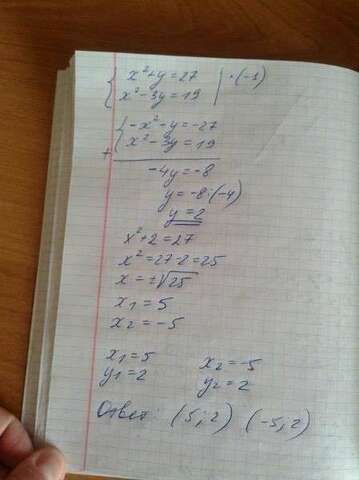 { x²+y=27 | ·(-1)
x²-3y=19
+ { -x²-y=-27
x²-3y=19
-4y=-8
y=-8:(-4)
y=2
x²+2=27
x²=27-2=25
x=±√25
x₁=5
x₂=-5
x₁=5 x₂=-5
y₁=2 y₂=2
Ответ: (5;2) (-5;2)